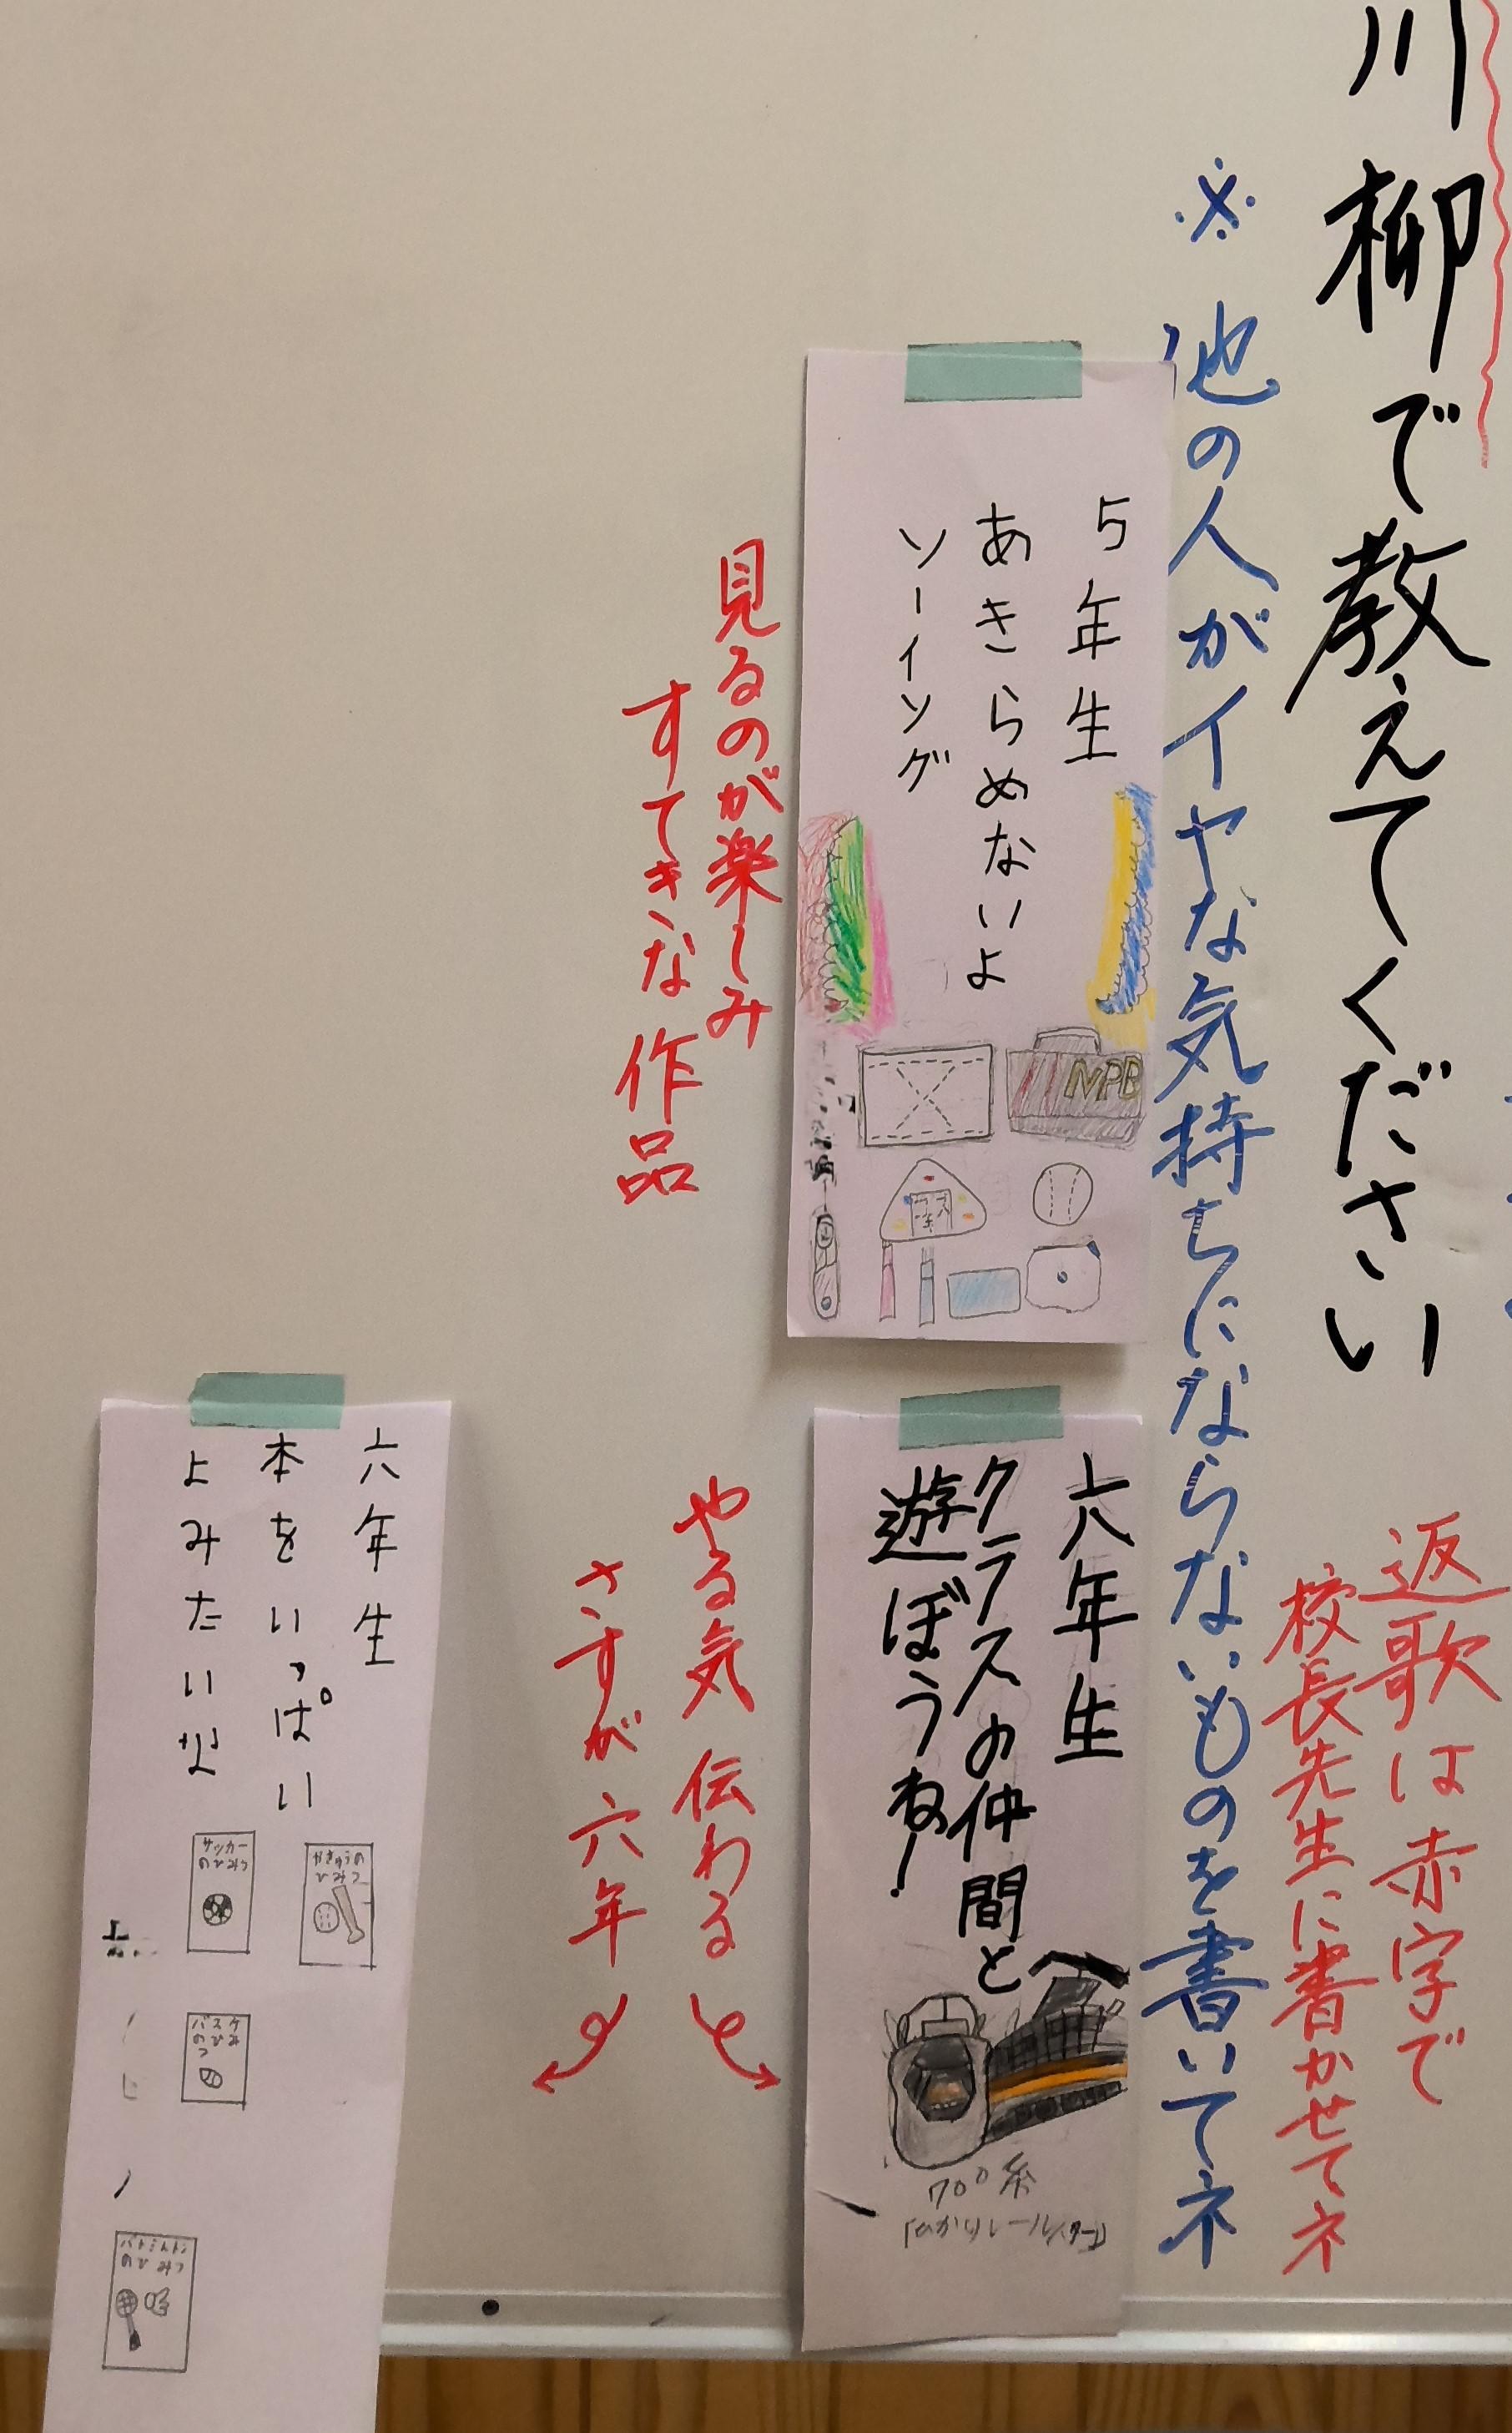 川柳で教えてください
※他の人がイヤな気持ちにならないものを書いてネ
返歌は赤字で
校長先生に書かせてネ
5年生
あきらめないよ
ソーイング
NPB
見るのが楽しみ
すてきな作品
六年生
クラスの仲間と
遊ぼうね!
700系
「ひかりレールスター」
やる気伝わる
さすが六年
六年生
本をいっぱい
よみたいな
やきゅうの
ひみつ
サッカー
のひみつ
バスケ
のひみ
つ
バドミントン
のひみつ